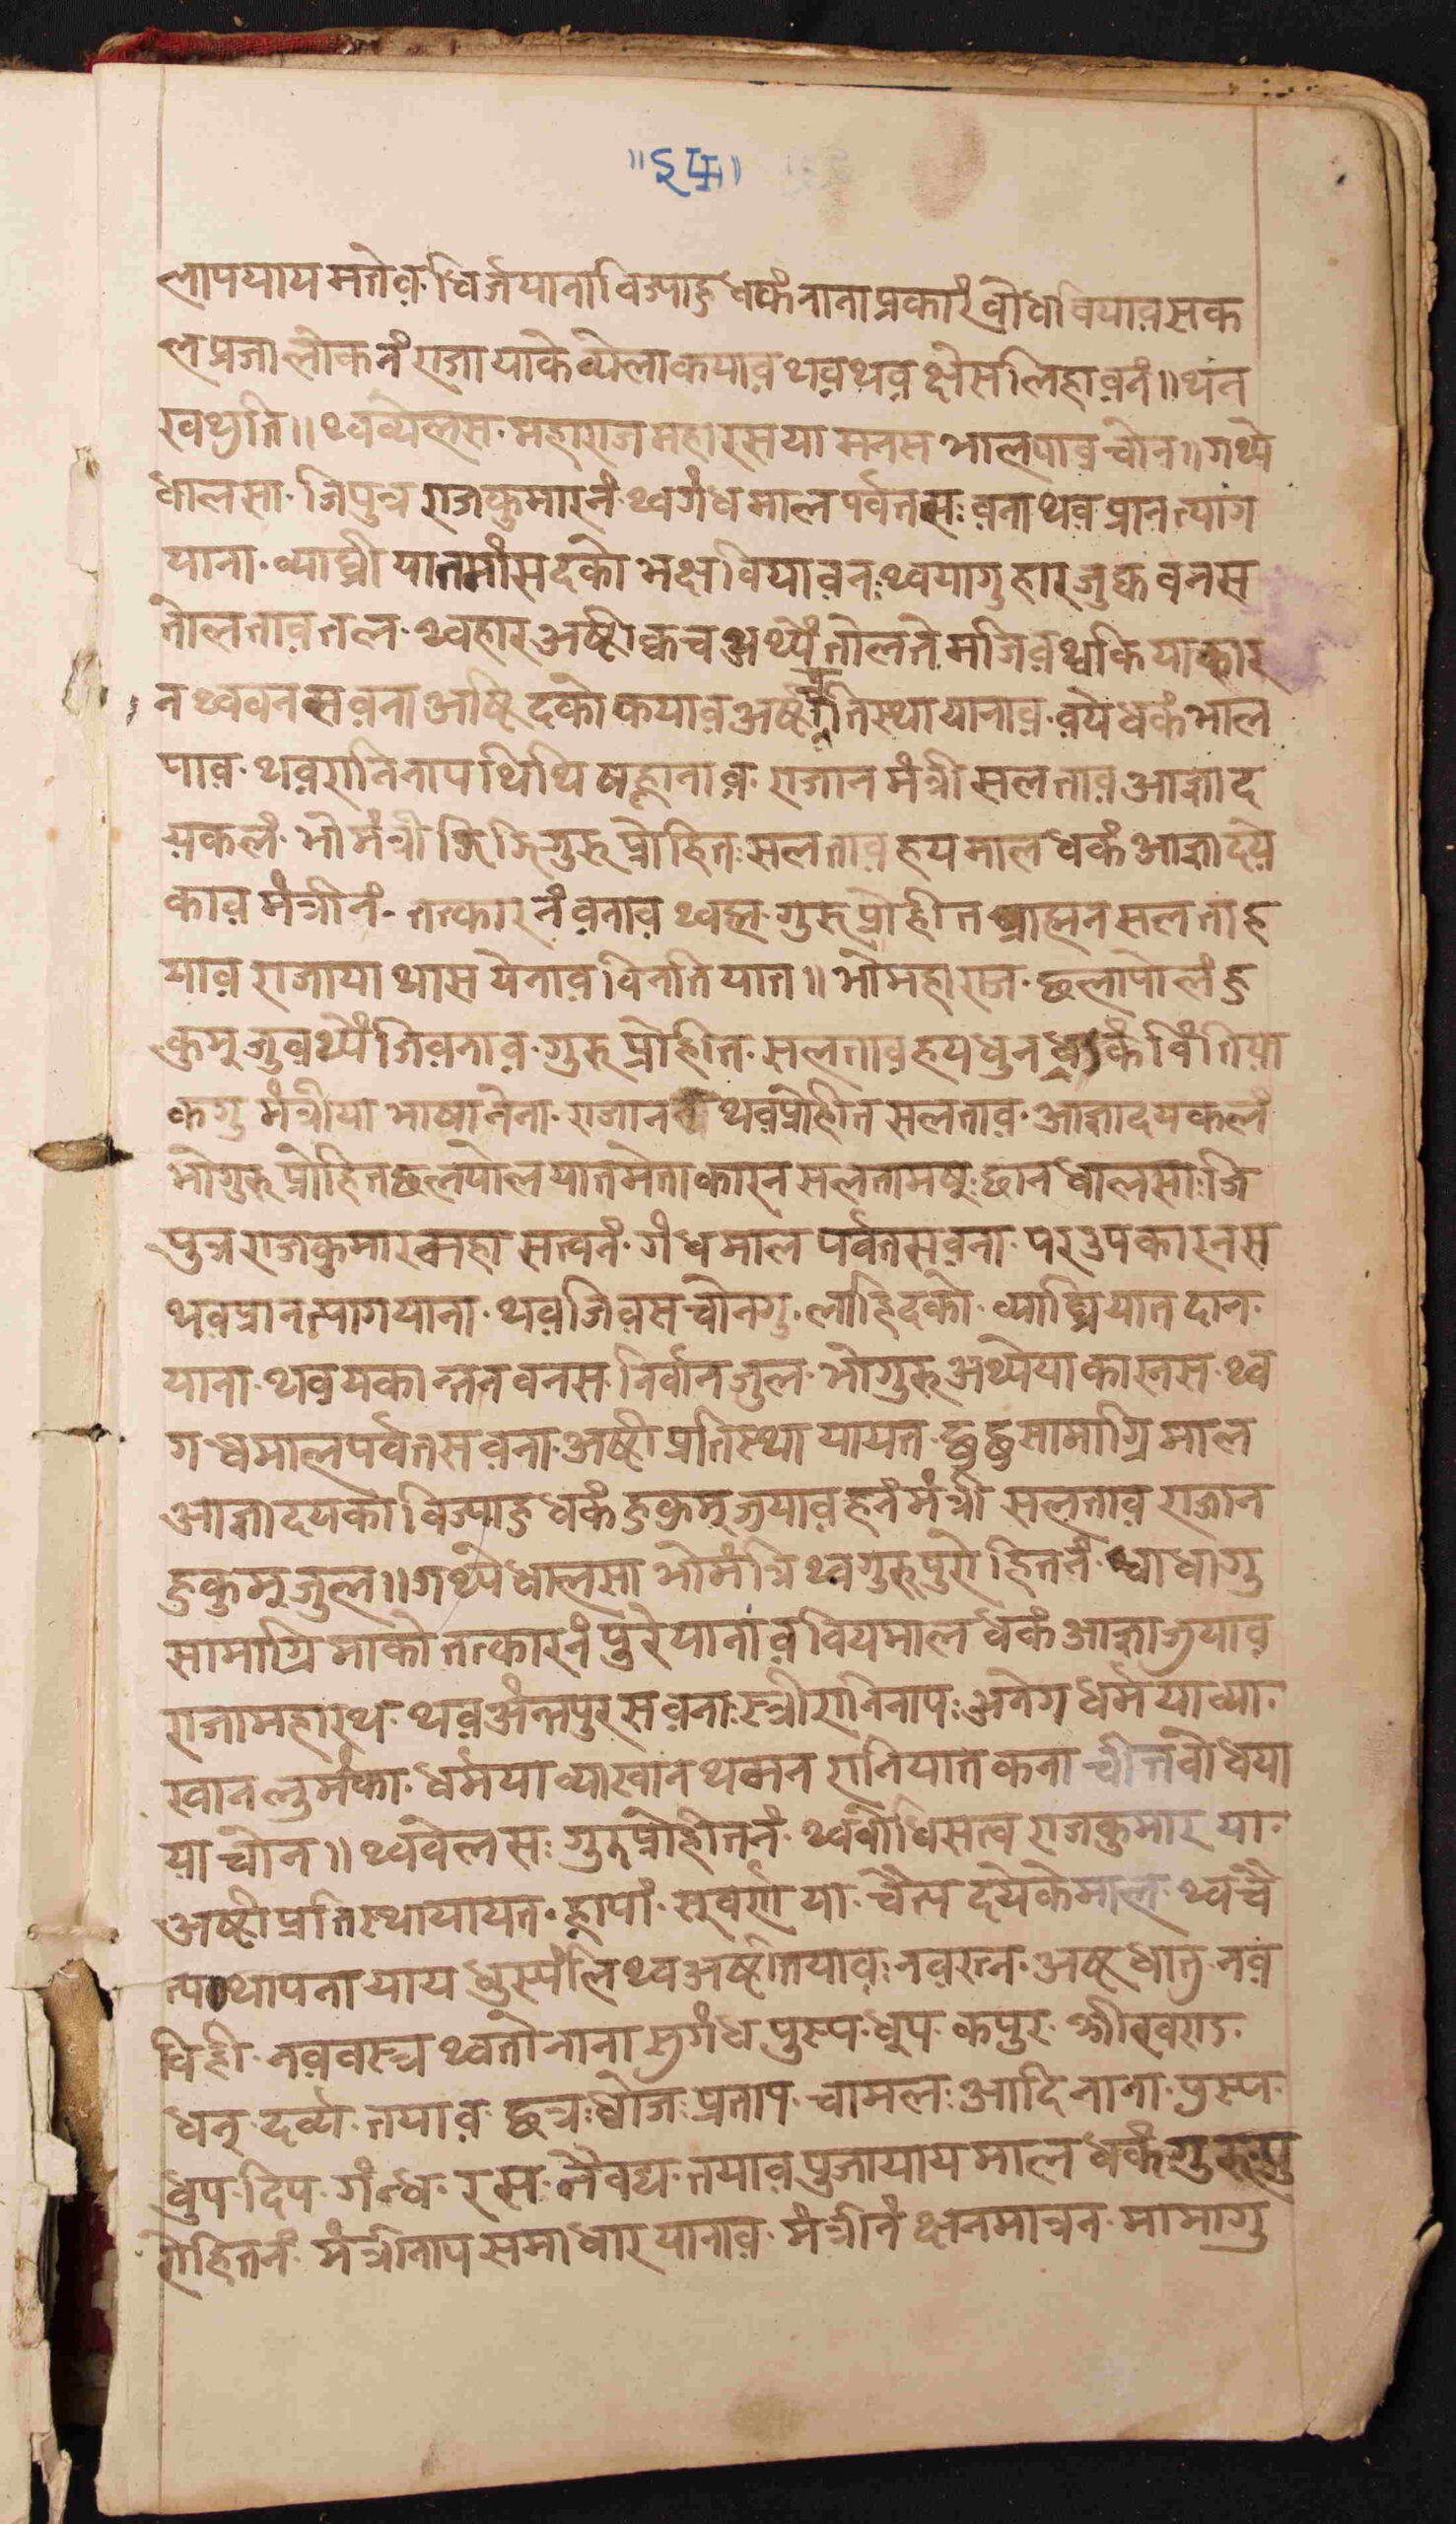 लापयाय मतेव. धिर्जयानाविज्याहु धकंनानाप्रकारं बोधवियाव सक
ल प्रजा लोकनं राजा याके व्येलाकयाव थव थव क्षेसलिहावनं॥थंन
खथ्यति॥थ्वव्येलस. महाराज महारसया मनस भालपाव चोन॥गथ्ये
धालसा. जिपुत्र राजकुमारनं थ्वगंधमाल पर्वतसः वना थव प्रान त्याग
याना. व्याघ्री यातमांसदको भक्षवियावन. थ्वयागु हार जुक्व वनस
तोलतावतल. थ्वहार अष्टीक्वच अथ्यें तोलते मजिव थ्वकियाकार
न थ्ववनस वना अष्टि दको कयाव अष्टप्रतिस्था यानाव. वये धकं भाल
पाव. थवरानिनाप थिथि षह्लानाव. राजान मंत्री सलताव आज्ञाद
यकलं. भोमंत्री जिजिगुरु प्रोहितः सलताव हयमाल धकं आज्ञादये
काव मंत्रीनं. तत्कारनं वनाव थ्वह्म. गुरु प्रोहीत ब्राह्मन सलताह
याव राजाया थास येनाव विनतियात॥भोमहाराज. छलापोलं हु
कुमजुव थ्यें जिवनाव. गुरु प्रोहीत. सलताव हयधुन धकं विंतिया
कगु मंत्रीया भाषानेना. राजान थवप्रोहीत सलताव. आज्ञादयकलं
भोगुरु प्रोहित छलपोल यातमेता कारन सलतामषु. छान धालसाः जि
पुत्र राजकुमार महा सत्वनं. गंधमाल पर्वतसवना. परउपकारनस
थवप्रान त्यागयाना. थवजिवस चोनगु. लाहिदको. व्याघ्रियात दान.
याना. थवयकान्तन वनस. निर्वान जुल. भोगुरु अथ्येया कारनस. थ्व
गन्धमालपर्वतस वना. अष्टी प्रतिस्था यायत. छु छु सामाग्रि माल
आज्ञादयका विज्याहु धकं हुकुमजुयाव हनं मंत्री सलताव राजान
हुकुमजुल॥गथ्ये धालसा भोमंत्रि थ्वगुरुपुरोहितनं. धाधागु
सामाग्रि माको तत्कारनं पुरेयानाव वियमाल धकं आज्ञाजुयाव
राजामहारथ. थव अंन्तपुर सवना. स्त्रीरानिनापः अनेग धर्म याव्या.
खानल्हुमंका. धर्मया व्याखान थमन रानियात कना चीत्तबोधया
याचोन॥थ्ववेलसः गुरुप्रोहीतनं. थ्वबोधिसत्व राजकुमार या.
अष्टी प्रतिस्थायायत. ह्लापां. सूवर्णया. चैत्य दयेकेमाल. थ्वचै
त्यथापनायाय धुस्यंलि थ्वअष्टीतयाव. नवरत्न. अष्टधातु. नव
विही. नववस्त्र थ्वतो नाना सुगंध पुस्प. धूप. कपुर. श्रीखराड.
धन. दर्व्य. तयाव. छत्रः ध्वोजः प्रताप. चामलः आदि नाना. पुस्प.
धुप. दिप. गंन्ध. रस. नैवद्य. तयाव पुजायायमाल धकं गुरुपु
रोहितनं. मंत्रीनाप समाधार यानाव. मंत्रीनं क्षनमात्रन. मामागु